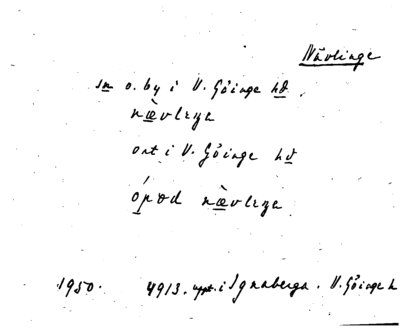 Nävlinge
sn o. by i V. Göinge hd.
nævlıŋa
ort i V. Göinge hd
ópod nævlıŋa
1950. 4913. uppt. i Ignaberga. V. Göinge h